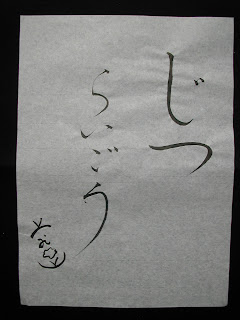 じつ
らいごう